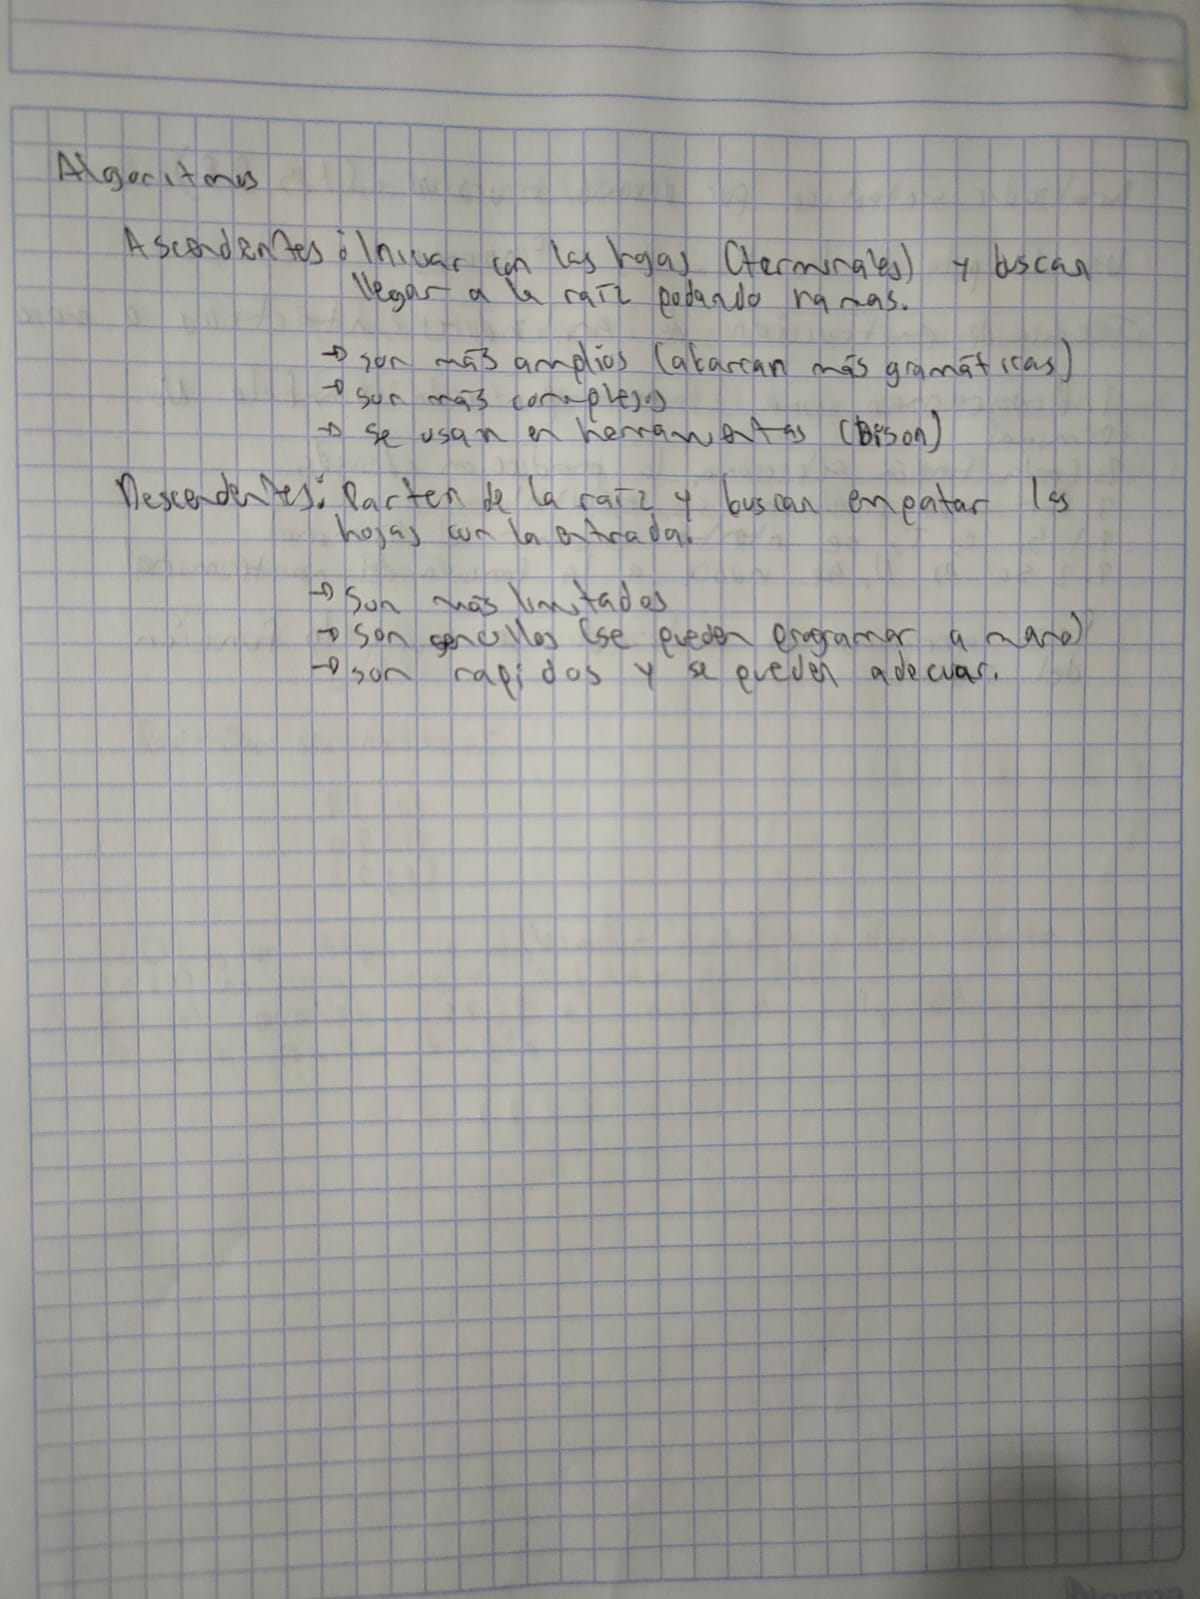 Algoritmos
Ascendentes: Iniciar con las hojas (terminales) y buscan
llegar a la raíz podando ramas.
→ son más amplios (abarcan más gramáticas)
→ son más complejos
→ se usan en herramientas (Bison)
Descendentes: Parten de la raíz y buscan empatar las
hojas con la entrada.
→ Son más limitados
→ son sencillos (se pueden programar a mano)
→ son rapidos y se pueden adecuar.